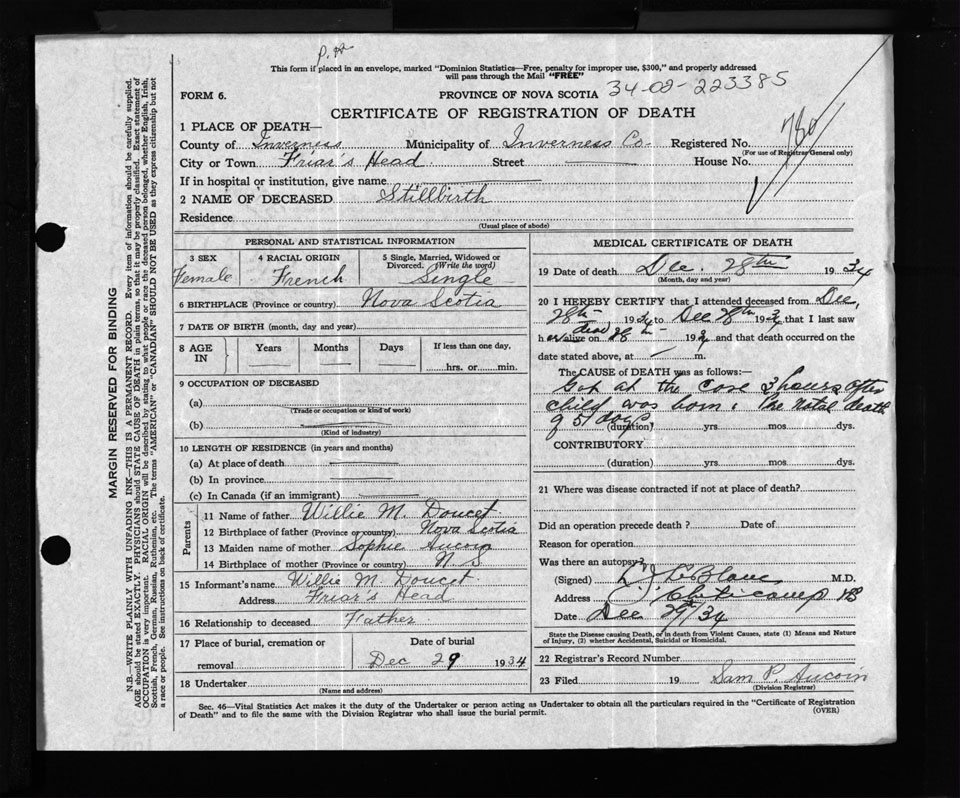 P. H
This form if placed in an envelope, marked "Dominion Statistics—Free, penalty for improper use, $300," and properly addressed
will pass through the Mail "FREE"
FORM 6.
PROVINCE OF NOVA SCOTIA 34-02-223385
CERTIFICATE OF REGISTRATION OF DEATH
780
1 PLACE OF DEATH—
County of Inverness Municipality of Inverness Co. Registered No.
(For use of Registrar General only)
City or Town Friar's Head Street House No.
If in hospital or institution, give name
2 NAME OF DECEASED Stillbirth
Residence
(Usual place of abode)
MARGIN RESERVED FOR BINDING
N.B.—WRITE PLAINLY WITH UNFADING INK—THIS IS A PERMANENT RECORD. Every item of information should be carefully supplied.
AGE should be stated EXACTLY. PHYSICIANS should STATE CAUSE OF DEATH in plain terms, so that it may be properly classified. Exact statement of
OCCUPATION is very important. RACIAL ORIGIN will be described by stating to what people or race the deceased person belonged, whether English, Irish,
Scottish, French, German, Russian, Ruthenian, etc. The terms "AMERICAN" or "CANADIAN" SHOULD NOT BE USED as they express citizenship but not
a race or people. See instructions on back of certificate.
PERSONAL AND STATISTICAL INFORMATION
3 SEX
Female
4 RACIAL ORIGIN
French
5 Single, Married, Widowed or
Divorced. (Write the word)
Single
6 BIRTHPLACE (Province or country) Nova Scotia
7 DATE OF BIRTH (month, day and year)
8 AGE
IN
Years
Months
Days
If less than one day,
hrs. or min.
9 OCCUPATION OF DECEASED
(a)
(Trade or occupation or kind of work)
(b)
(Kind of industry)
10 LENGTH OF RESIDENCE (in years and months)
(a) At place of death
(b) In province
(c) In Canada (if an immigrant)
Parents
11 Name of father Willie M. Doucet
12 Birthplace of father (Province or country) Nova Scotia
13 Maiden name of mother Sophie Aucoin
14 Birthplace of mother (Province or country) N. S
15 Informant's name Willie M Doucet
Address Friar's Head
16 Relationship to deceased Father
17 Place of burial, cremation or
removal
Date of burial
Dec 29 1934
18 Undertaker
(Name and address)
MEDICAL CERTIFICATE OF DEATH
19 Date of death Dec. 28th 1934
(Month, day and year)
20 I HEREBY CERTIFY that I attended deceased from Dec,
28th 1934 to Dec 28th 1934 that I last saw
her dead alive on 28th 193 and that death occurred on the
date stated above, at m.
The CAUSE OF DEATH was as follows:—
Got at the case 3 hours after
child was born. Pre natal death
of 5 days
(duration) yrs mos. dys.
CONTRIBUTORY
(duration) yrs mos. dys.
21 Where was disease contracted if not at place of death?
Did an operation precede death? Date of
Reason for operation
Was there an autopsy?
(Signed) LeBlanc M.D.
Address Cheticamp NS
Date Dec 29/34
State the Disease causing Death, or in death from Violent Causes, state (1) Means and Nature
of Injury, (2) whether Accidental, Suicidal or Homicidal.
22 Registrar's Record Number
23 Filed 19 Sam P. Aucoin
(Division Registrar)
Sec. 46—Vital Statistics Act makes it the duty of the Undertaker or person acting as Undertaker to obtain all the particulars required in the "Certificate of Registration
of Death" and to file the same with the Division Registrar who shall issue the burial permit. (OVER)